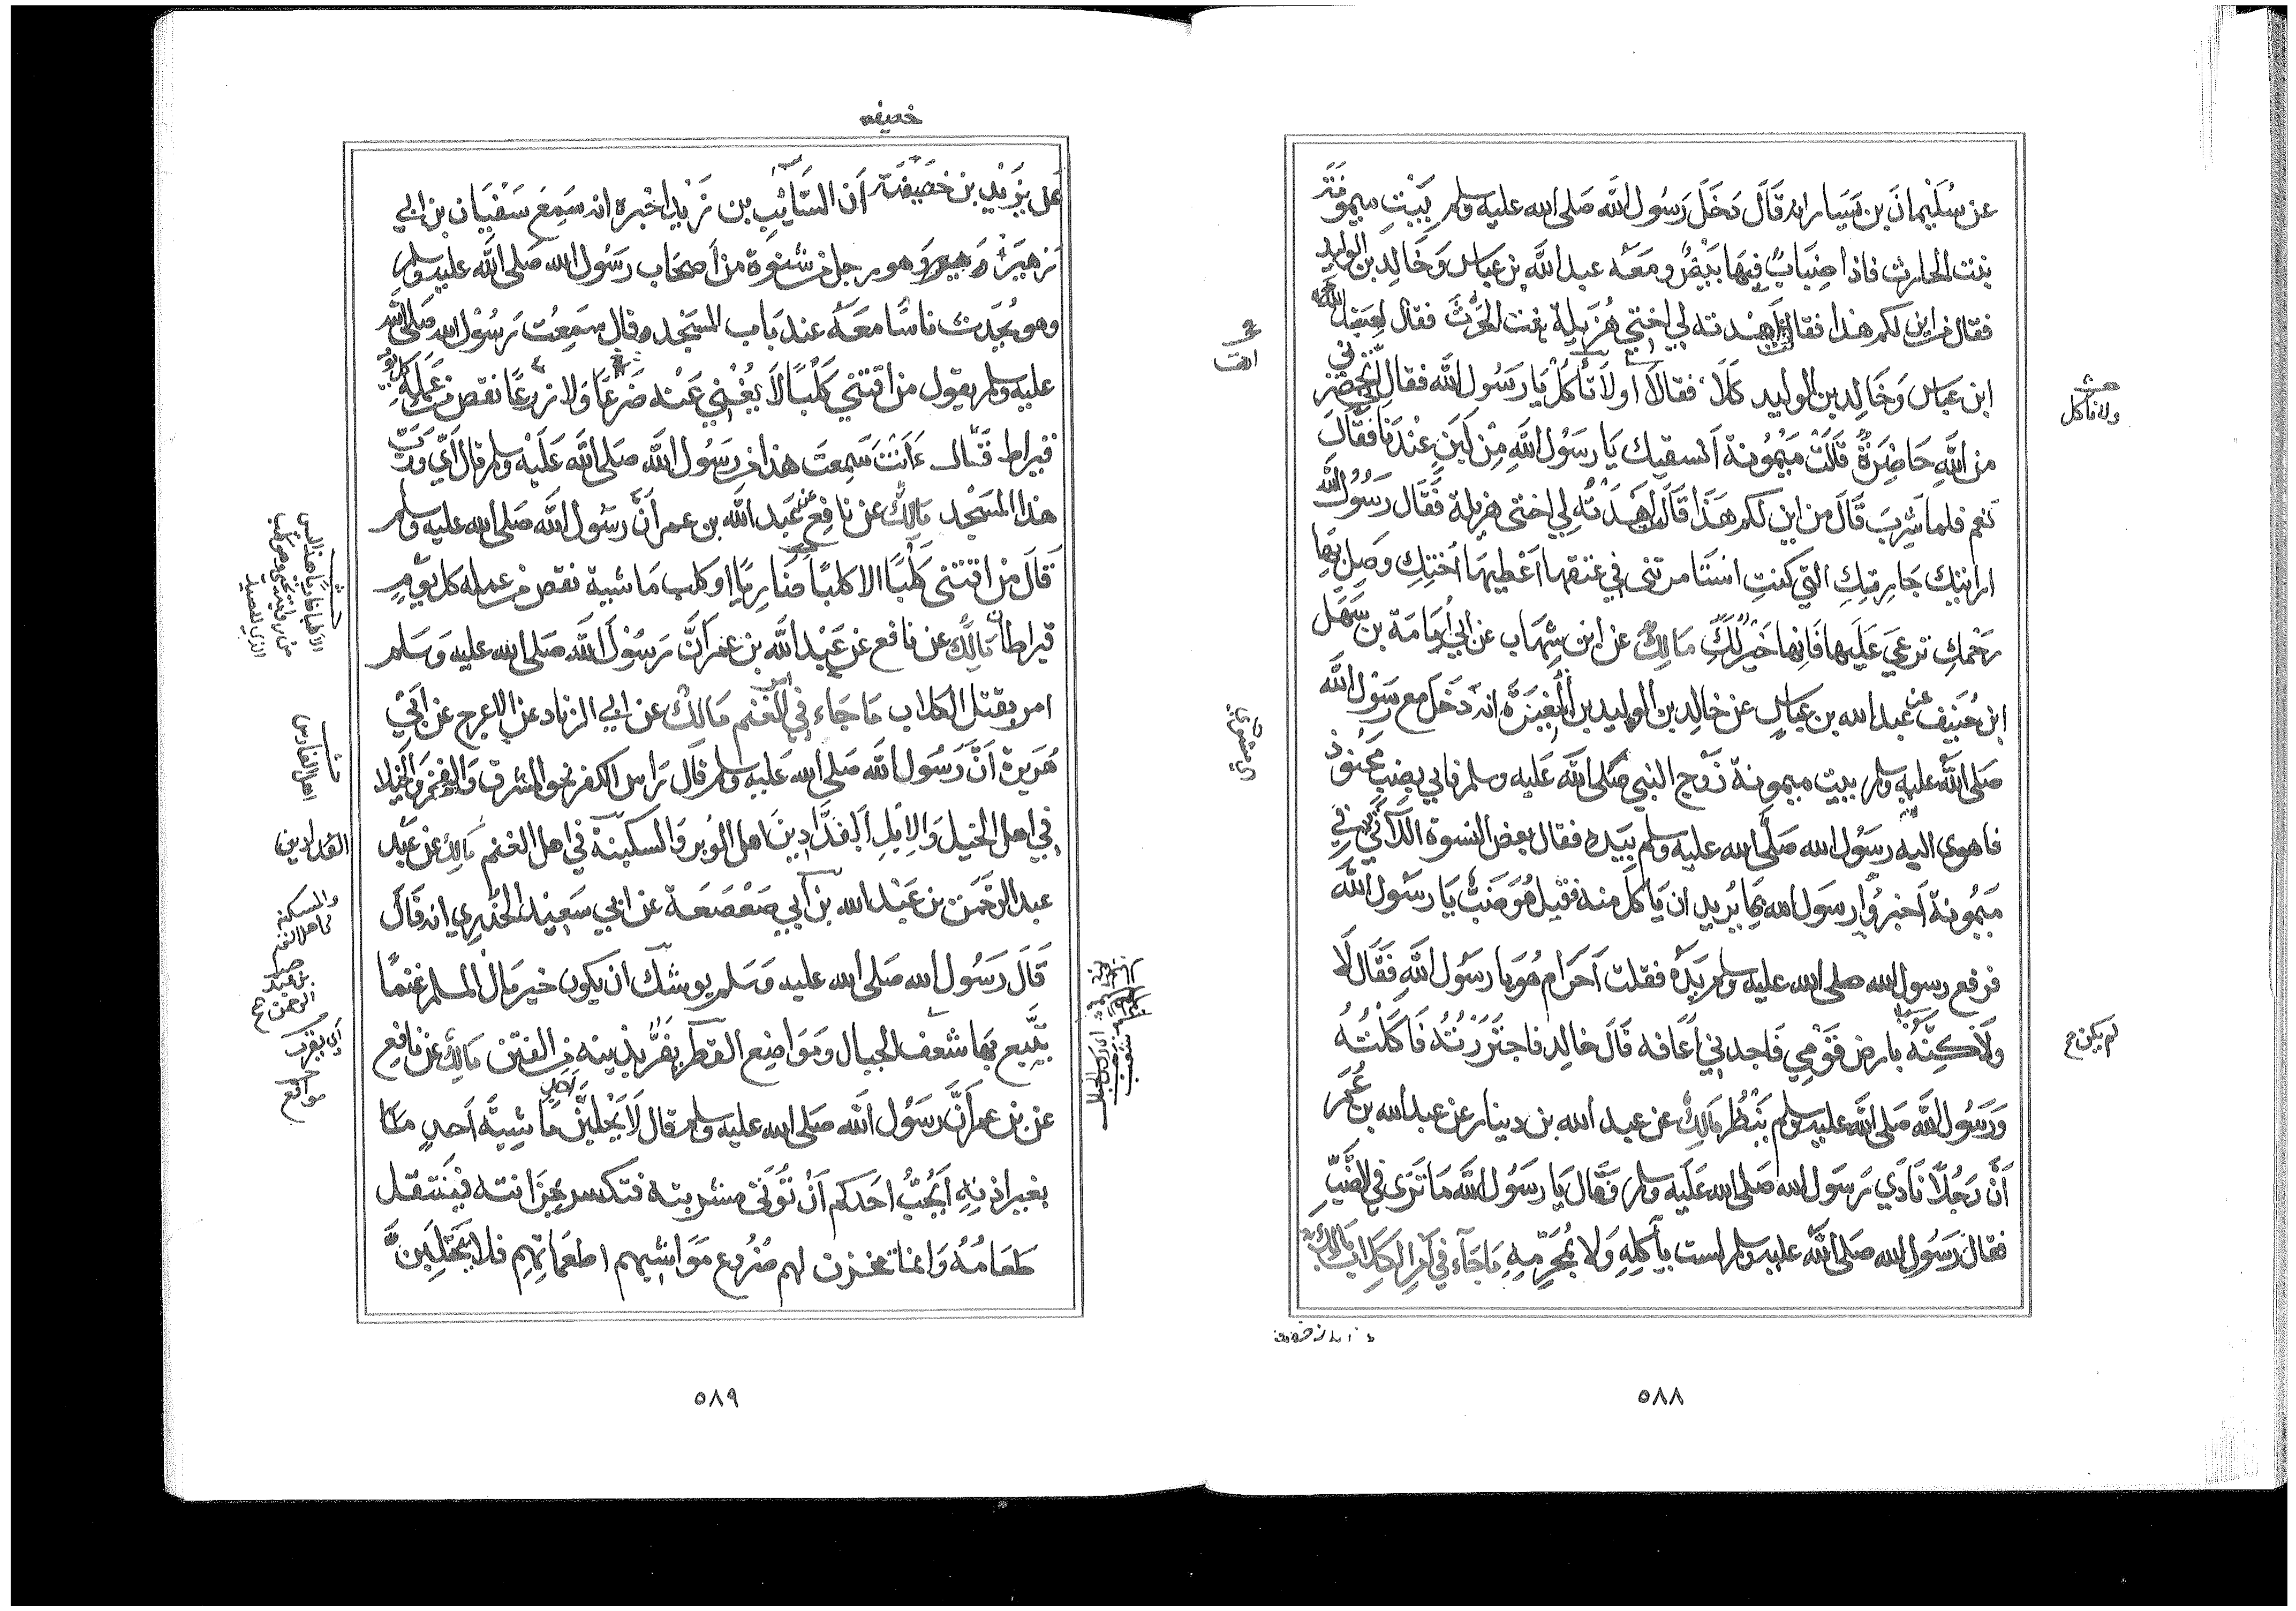 عن سُلَيْمانَ بن يَسَار انه قَالَ دَخَلَ رَسُول اللَّه صَلى الله عليه وسلم بَيْتِ ميمونَة
بنت الحارث فاذا ضِبَابٌ فيهَا بَيْضٌ ومَعَه عبد اللَّه بن عباس وَخَالِد بن الوليد
فقال من اين لكم هذا فقالت اهدته لي اختي هُزَيلة بنت الحرث فقال لعبد الله
ابن عباس وَخَالِد بن الوليد كُلَا فقالَا اولَا تأكُلُ يَا رَسُول اللَّه فقال اني تحضرني
من اللَّهِ حَاضِرَةٌ قَالَت مَيْمُونة انسقيك يَا رسُول اللَّهِ مِن لَبَنٍ عِنْدَنَا فقَالَ
نعم فلما شَرِبَ قَالَ من اين لكم هَذَا قَالَت اهدَتْه لي اختى هزيلة فقَال رَسُول اللَّه
ارايتِك جَاريتِكِ التي كنتِ استامرتنى في عتقها اَعْطِيهَا اُختِكِ وَصِلي بها
رَحْمكِ ترعي عَلَيها فَانها خَيْرٌ لكِ مَالِكٌ عن ابن شِهَاب عن ابي اُمَامَة بن سَهْل
ابن حُنَيف عن عبد الله بن عباس عن خالِد بن الوليد بن المُغيرَة انه دَخَل مع رسُول اللَّه
صَلى اللَّه عليه وسلم بيت ميمونة زَوْج النبي صَلى اللَّه عَليه وسلم فاتي بضبٍ محْنوذ
فاهوى اليه رسُول الله صَلَّى الله عليه وسلم بيَده فقال بعض النسوة اللاتي في بيت
مَيمُونة اَخبِرُوا رسَول الله بما يُريد ان يَاكل منه فقيل هُوَ ضَبٌّ يَا رسُول اللَّه
فرفع رسول الله صلى الله عليه وسلم يَدَهُ فقلت اَحَرام هُوَ يا رسُول اللَّهِ فَقَالَ لَا
ولَاكنَّهُ لَيس بارض قَوْمي فَاجدني اعَافه قَالَ خالِد فاجتَرَرْتُهُ فَاكَلْتُهُ
وَرسُول اللَّه صَلى اللَّه عليه وسلم يَنْظُر مَالِكٌ عن عبد الله بن دينار عن عبد الله بن عُمَر
اَنَّ رَجُلًا نَادَي رَسُول الله صَلى الله عَليه وسلم فقَال يَا رسَول اللَّه مَا تَرَى في الضَّبِّ
فقال رَسُول الله صَلى اللَّه عليه وسلم لست باَكِلِهِ وَلا بمُحَرِّمِهِ مَا جَاءَ في اَمْر الكِلاب مَالِكٌ
ولا ناكل
لم يكن
٥٨٨
خصيفه
عن يَزيْد بن خَصَيفَة اَن السَّائِب بن يَزيد اخبره انه سَمِعَ سَفْيَان بن ابي
زهَير وَهو رجل من شنوة من اَصحَاب رَسُول الله صَلى اللَّه عليه وسلم
وهو يُحَدث ناسًا مَعَهُ عند بَاب المسَجد وقال سَمِعْت رَسُوْل الله صَلى اللَّه
عليه وسلم يقول من اقتني كَلبًا لَا يُغْنِي عَنْه ضَرْعًا وَلا زرعًا نقص من عَمَلهِ كل يوم
قيراط قَال ءَاَنتَ سَمِعت هذا من رسُول اللَّه صَلى اللَّه عَلَيْه وسلم قال اَي وَربّ
هذا المَسْجد مَالِكٌ عن نافِع عن عَبد اللَّه بن عمر اَنَّ رسُول اللَّه صَلى الله عليه وسلم
قَالَ مَن اقتنى كَلْبًا الا كلبًا ضَاريًا او كلب مَاشية نقص من عمله كل يَوْمٍ
قيراطان مَالِكٌ عن نافع عن عَبْد اللَّه بن عمر اَنَّ رَسُوْل اللَّه صَلى الله عليه وَسَلم
امر بقتل الكلاب مَا جَاء في امر الغنم مَالِكٌ عن ابي الزناد عن الاعرج عن اَبي
هُرَيرة اَنَّ رَسُول الله صَلى الله عَليه وسلم قال رَاس الكفر نحو المشرق وَالفخر وَالخيلا
في اهل الخيل وَالابل الفَدَّادِينَ اهل الوَبر وَالسكينة في اهل الغنم مَالِكٌ عن عَبد
عبد الرحمن بن عَبْد الله بن اَبي صَعْصَعَة عن ابي سَعيد الخدري انه قَالَ
قَالَ رَسُول الله صَلى الله عليه وَسَلم يوشك ان يكون خير مَال المسلم غنمًا
يتَّبع بهَا شعَف الجبال ومَوَاضِع القطر يَفرُّ بدينه من الفتن مَالِكٌ عن نافِع
عن بن عمر اَنَّ رسَول اللَّه صَلى الله عليه وسلم قال لَا يَحْلبَنَّ احد مَاشيَة اَحدٍ
بغير اذنِه اَيُحِبُّ احَدكم اَنْ تُؤتَى مشربته فتكسر خِزَانته فَينتقل
طَعَامُهُ وَانما تخزن لهم ضُرُوع مَوَاشيهم اطعمَاتهِم فلا يحتلبَنَّ
الفدادين
والسكينة
في اهل الغنم
بن عبد
الرحمن
مواقع
٥٨٩